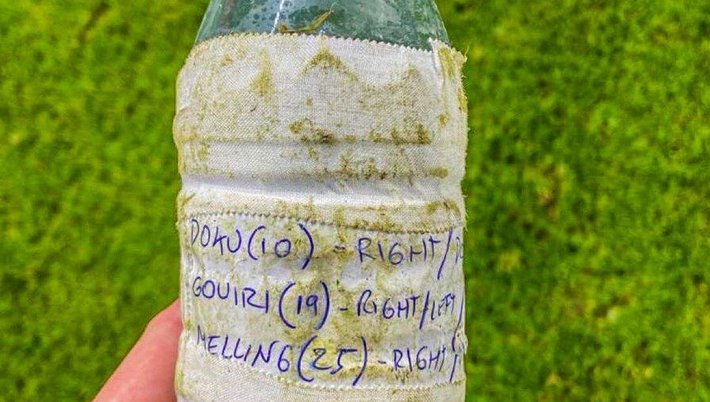 DOKU(10) - RIGHT/
GOUIRI(19) - RIGHT/LEFT/
MELLING(25) - RIGHT/